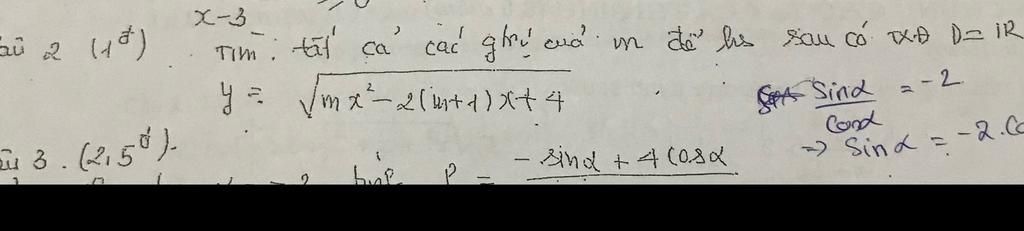 x-3
Câu 2 (1đ) Tìm tất cả các gtrị của m để hs sau có TXĐ D = IR
y = √(mx² - 2(m+1)x + 4)
sinα/cosα = -2
⇒ sinα = -2.co
3. (2,5đ).
= -2 tính P = - sinα + 4 cosα